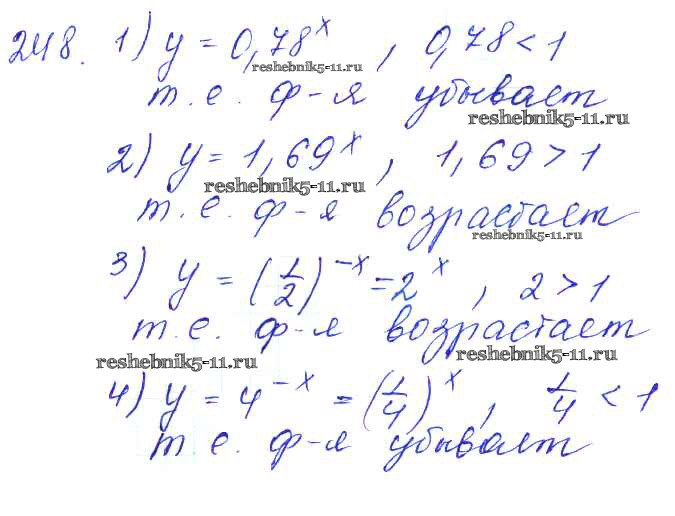 248. 1) y = 0,78^x, 0,78 < 1
reshebnik5-11.ru
т.е. ф-я убывает
reshebnik5-11.ru
2) y = 1,69^x, 1,69 > 1
reshebnik5-11.ru
т.е. ф-я возрастает
reshebnik5-11.ru
3) y = (1/2)^-x = 2^x, 2 > 1
т.е. ф-я возрастает
reshebnik5-11.ru reshebnik5-11.ru
4) y = 4^-x = (1/4)^x, 1/4 < 1
т.е. ф-я убывает